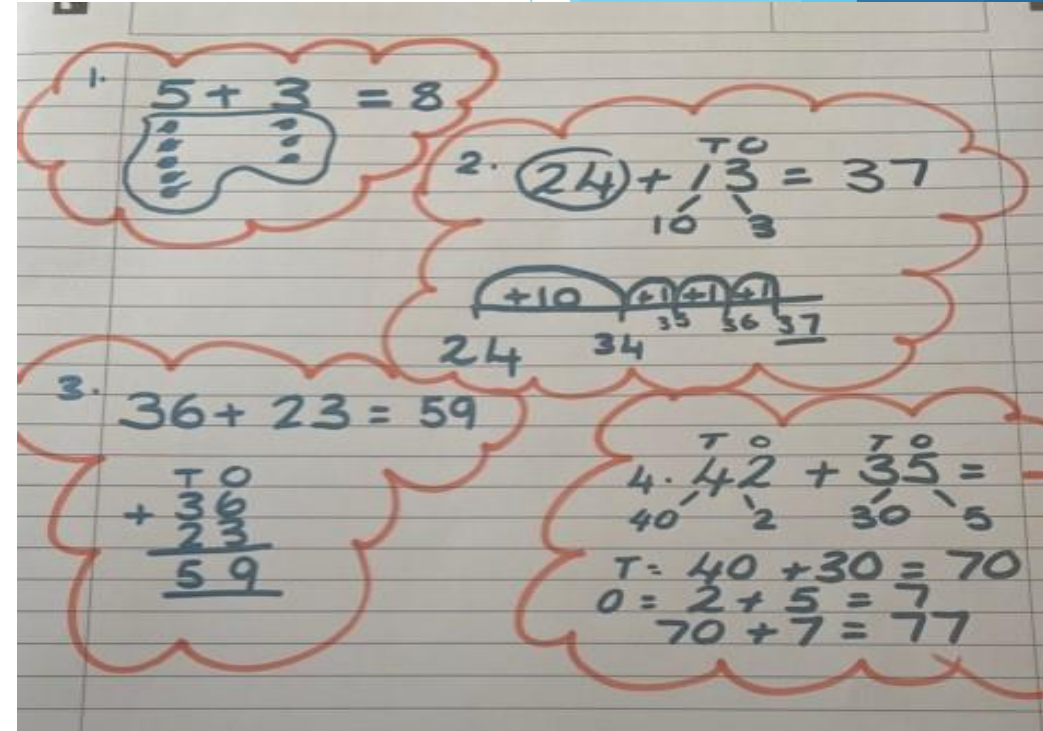 1.
5 + 3 = 8
2.
T O
24 + 13 = 37
10 3
+10 +1 +1 +1
35 36 37
24 34
3.
36 + 23 = 59
T O
+ 36
23
59
T O T O
4. 42 + 35 =
40 2 30 5
T = 40 + 30 = 70
O = 2 + 5 = 7
70 + 7 = 77